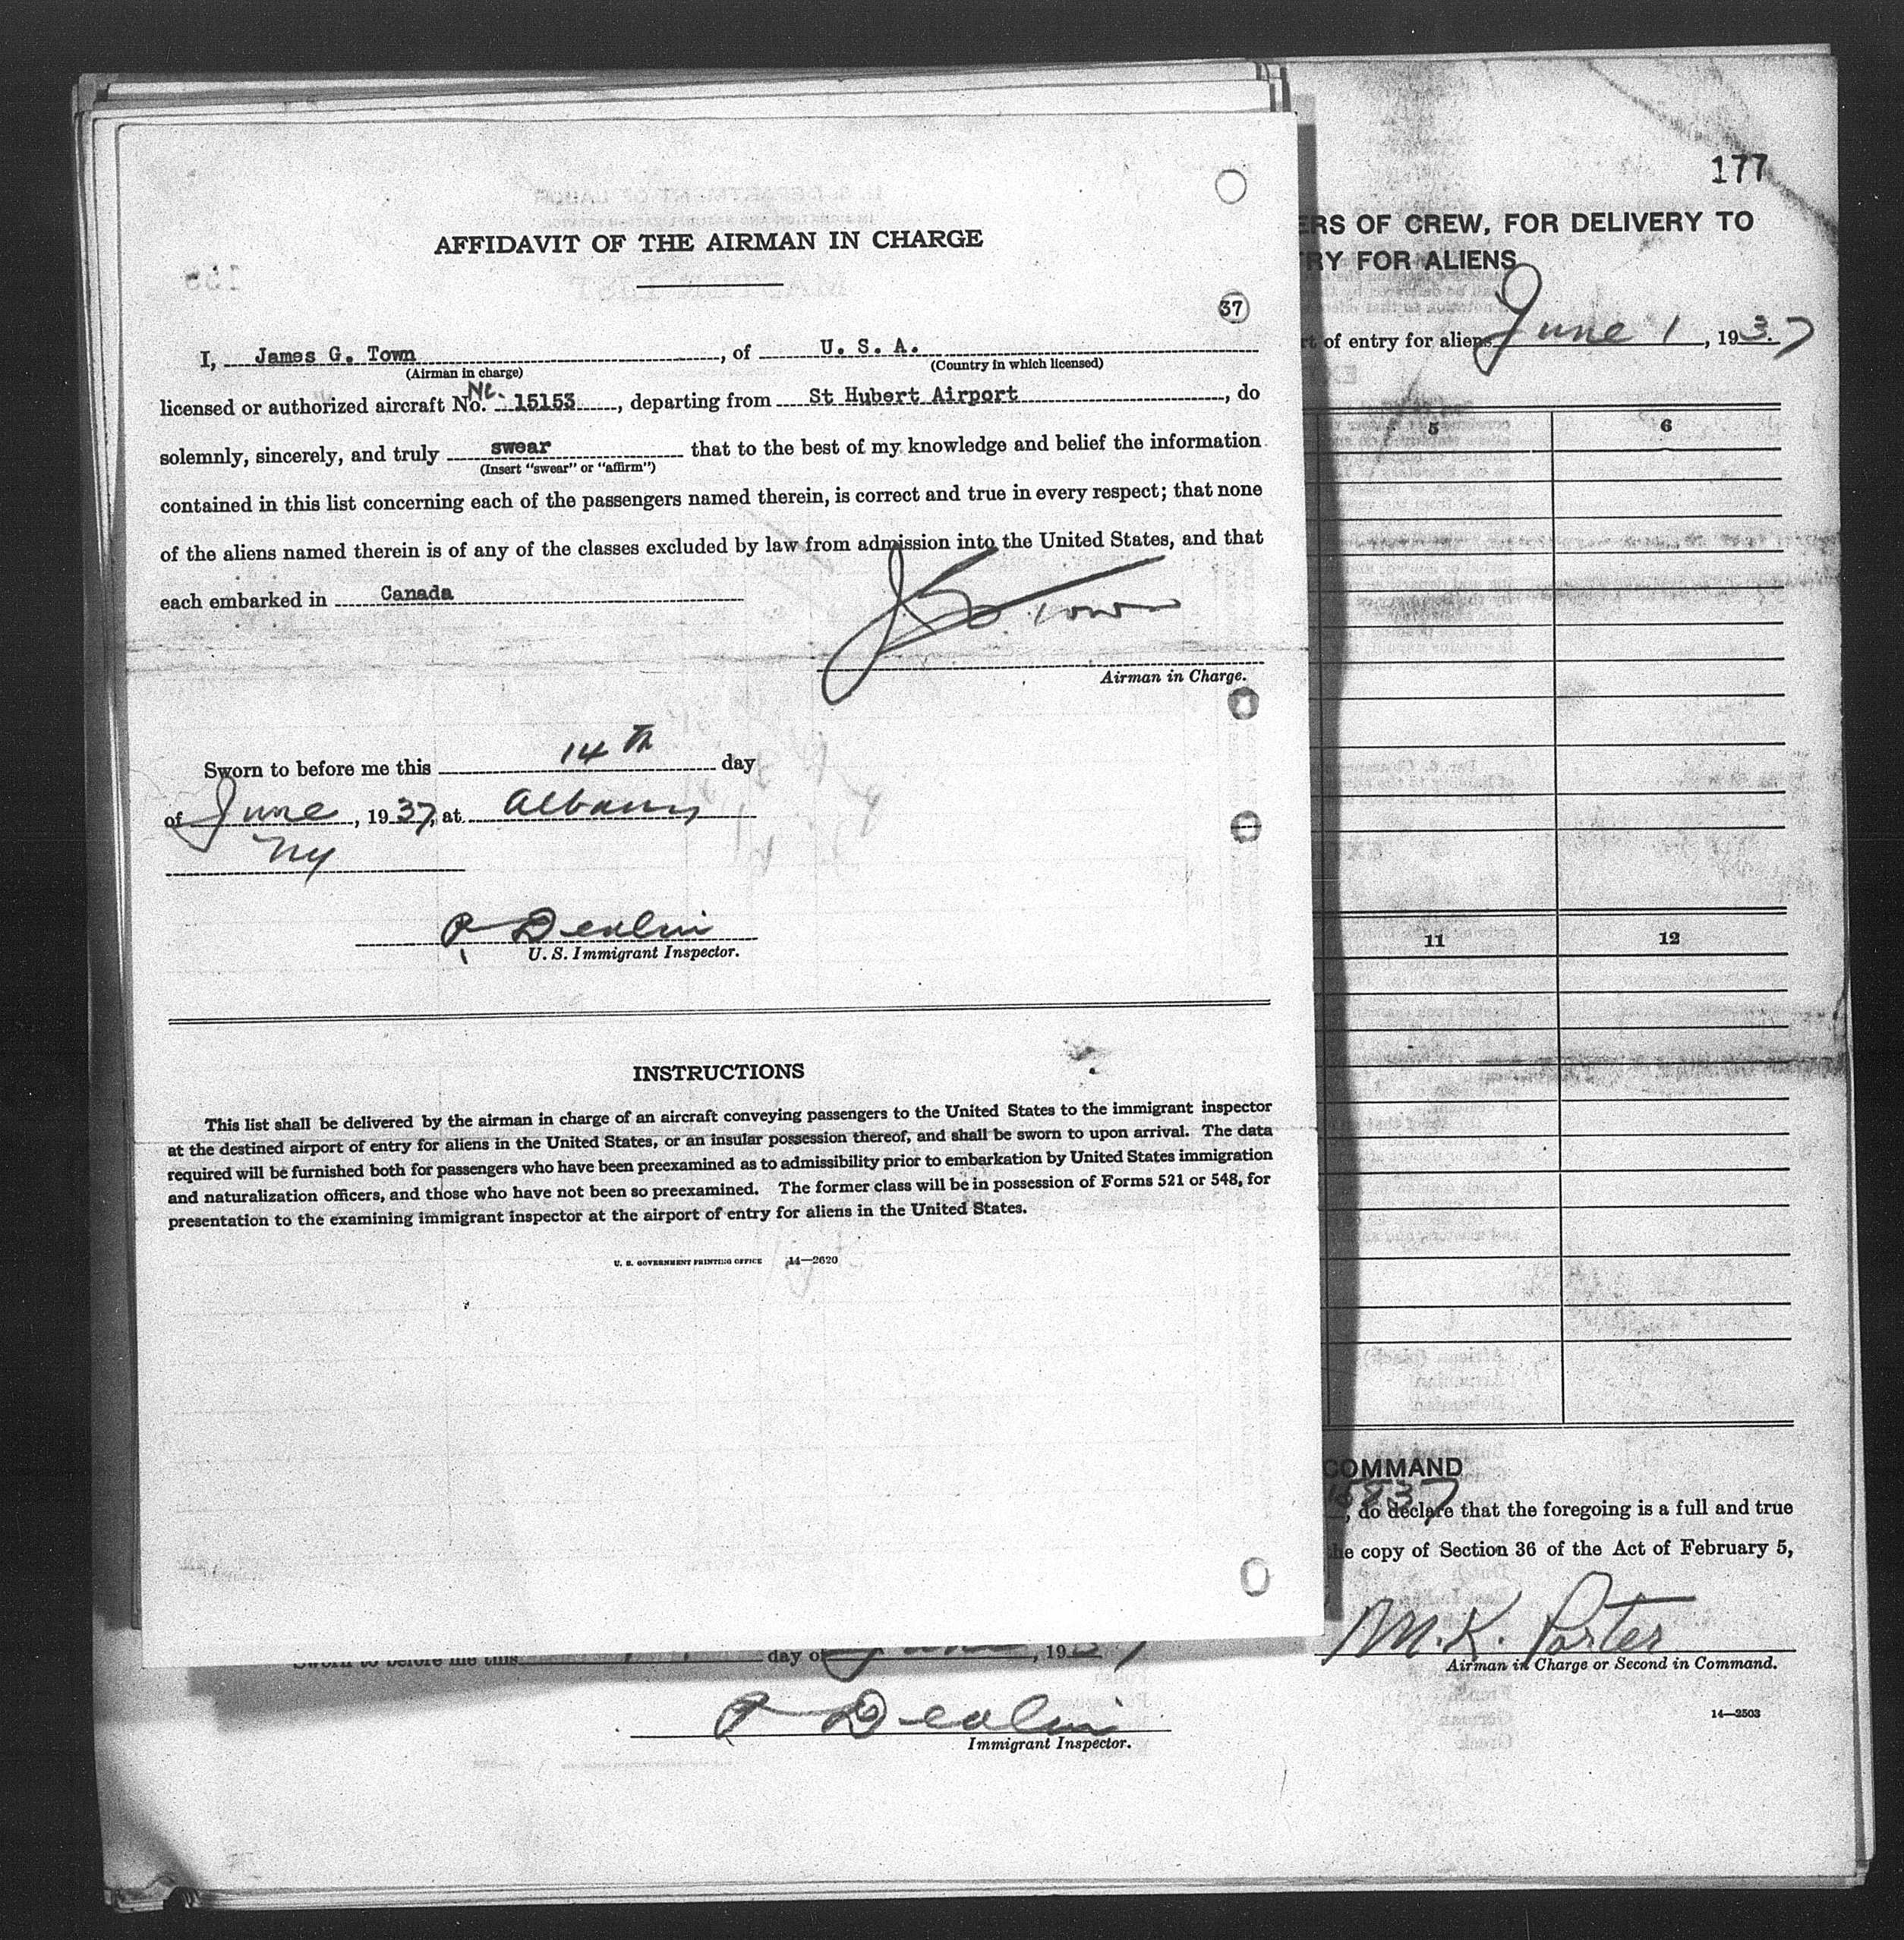 AFFIDAVIT OF THE AIRMAN IN CHARGE
37
I, James G. Town, of U. S. A.
(Airman in charge) (Country in which licensed)
licensed or authorized aircraft No. Nc. 15153, departing from St Hubert Airport, do
solemnly, sincerely, and truly swear that to the best of my knowledge and belief the information
(Insert "swear" or "affirm")
contained in this list concerning each of the passengers named therein, is correct and true in every respect; that none
of the aliens named therein is of any of the classes excluded by law from admission into the United States, and that
each embarked in Canada
J G Town
Airman in Charge.
Sworn to before me this 14th day
of June, 1937, at Albany
NY
U. S. Immigrant Inspector.
INSTRUCTIONS
This list shall be delivered by the airman in charge of an aircraft conveying passengers to the United States to the immigrant inspector
at the destined airport of entry for aliens in the United States, or an insular possession thereof, and shall be sworn to upon arrival. The data
required will be furnished both for passengers who have been preexamined as to admissibility prior to embarkation by United States immigration
and naturalization officers, and those who have not been so preexamined. The former class will be in possession of Forms 521 or 548, for
presentation to the examining immigrant inspector at the airport of entry for aliens in the United States.
U. S. GOVERNMENT PRINTING OFFICE 14—2620
177
ERS OF CREW, FOR DELIVERY TO
RY FOR ALIENS
of entry for aliens June 1, 1937
5 6
11 12
COMMAND
15837
, do declare that the foregoing is a full and true
he copy of Section 36 of the Act of February 5,
M. K. Porter
Airman in Charge or Second in Command.
14—2503
Sworn to before me this day of June, 1937
Immigrant Inspector.